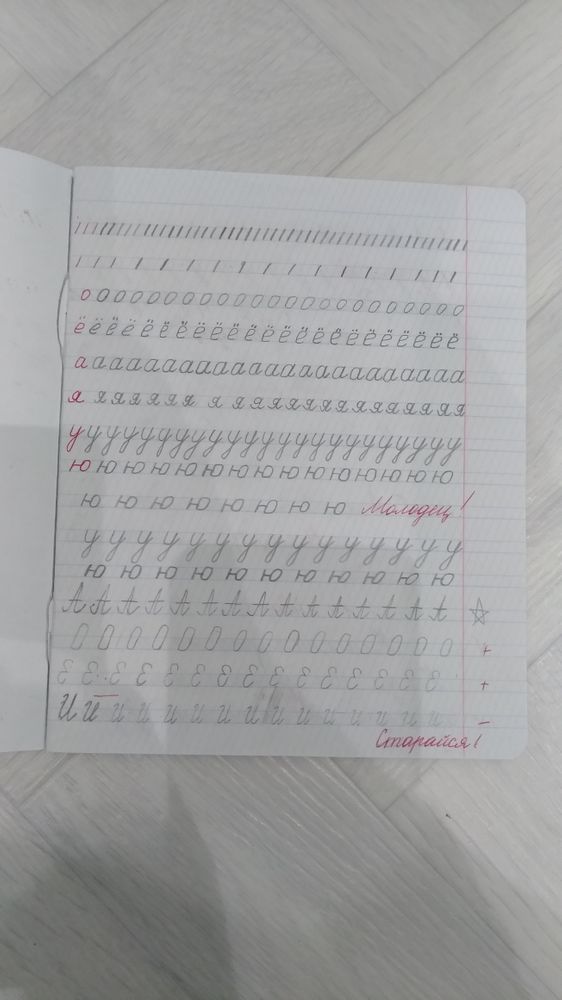 о о о о о о о о о о о о о о о о о о о о о о
ё ё ё ё ё ё ё ё ё ё ё ё ё ё ё ё ё ё ё ё ё ё
а а а а а а а а а а а а а а а а а а а а а а
я я я я я я я я я я я я я я я я я я я я я
у у у у у у у у у у у у у у у у у у у у у у у
ю ю ю ю ю ю ю ю ю ю ю ю ю ю ю
ю ю ю ю ю ю ю ю ю Молодец!
у у у у у у у у у у у у у у у
ю ю ю ю ю ю ю ю ю ю ю
А А А А А А А А А А А А А А А
О О О О О О О О О О О О О О О +
Е Е Е Е Е Е Е Е Е Е Е Е Е Е Е +
И И И И И И И И И И И И И И И –
Старайся!